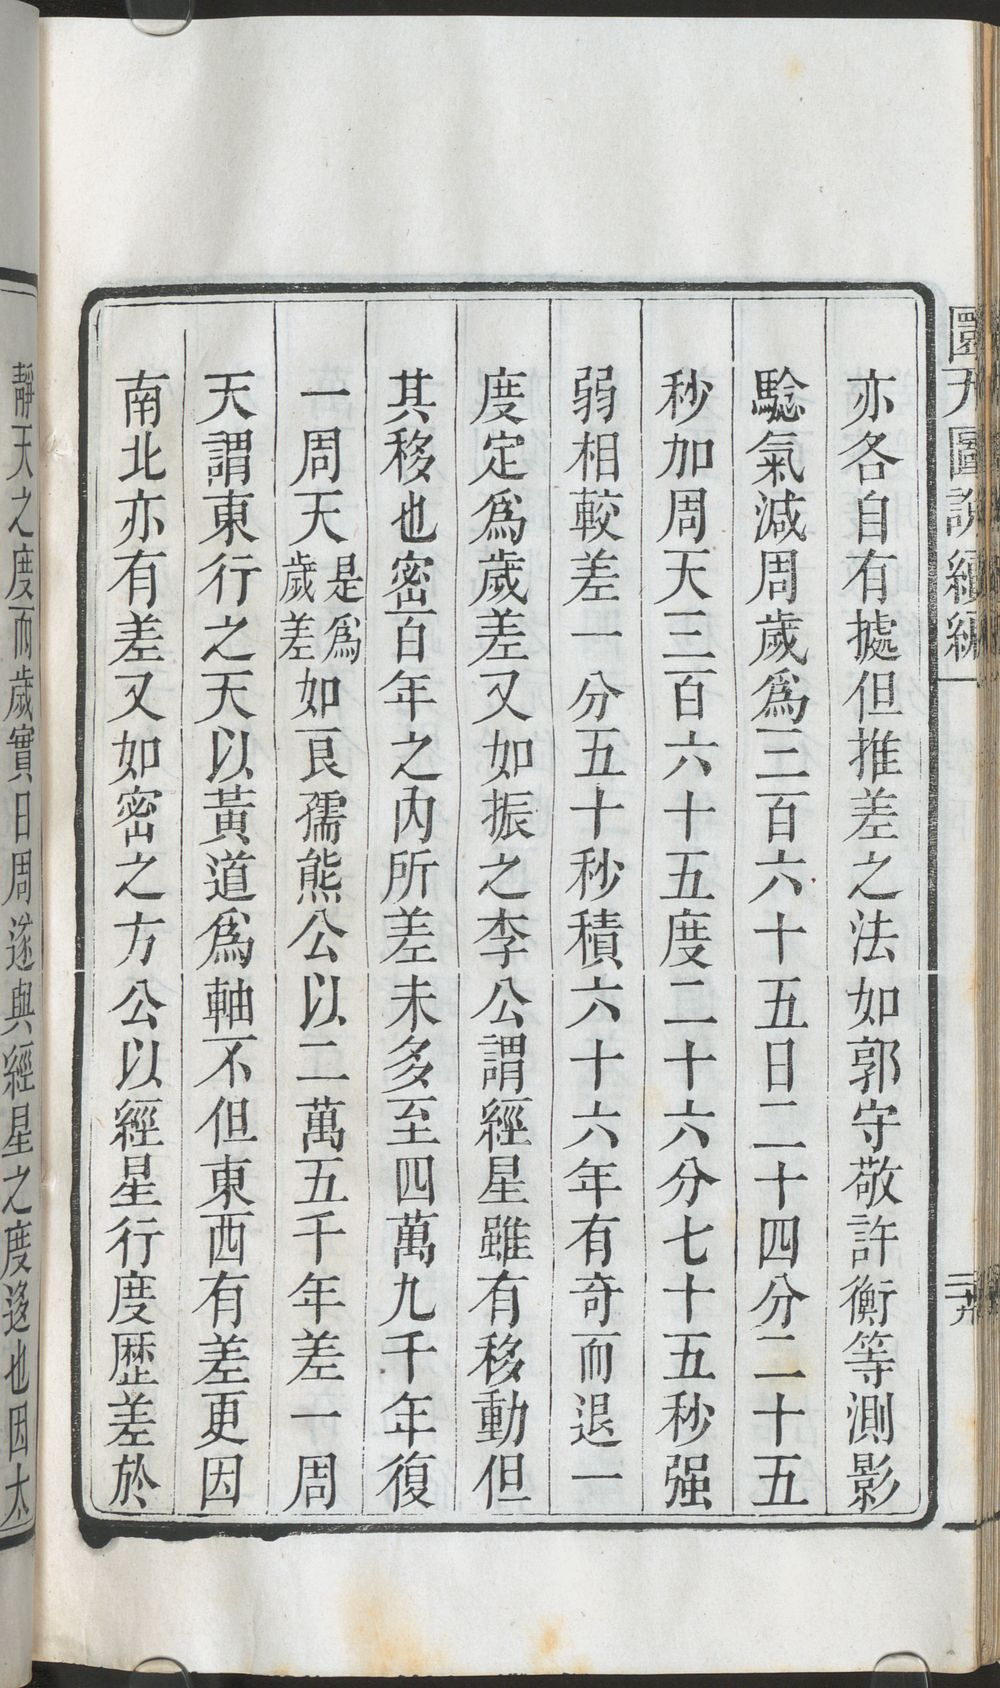 圜天圖說續編一
二十九
亦各自有據但推差之法如郭守敬許衡等測影
騐氣減周歲爲三百六十五日二十四分二十五
秒加周天三百六十五度二十六分七十五秒强
弱相較差一分五十秒積六十六年有奇而退一
度定爲歲差又如振之李公謂經星雖有移動但
其移也密百年之內所差未多至四萬九千年復
一周天是爲歲差如良孺熊公以二萬五千年差一周
天謂東行之天以黃道爲軸不但東西有差更因
南北亦有差又如密之方公以經星行度歴差於
靜天之度而歲實日周遂與經星之度移也因太